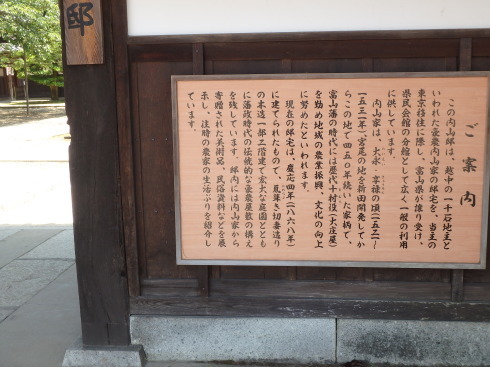 邸
ご案内
この内山邸は、越中の一千石地主と
いわれた豪農内山家の邸宅を、当主の
東京移徙に際し、富山県が譲り受け、
県民会館の分館として広く一般の利用
に供しています。
内山家は、大永・享禄の頃(一五二一〜
一五三一年)、宮尾の地を新田開発してか
らこの地で四五〇年続いた家柄で、
富山藩の時代には歴代十村役(大庄屋)
を勤め地域の農業振興、文化の向上
に努めたといわれます。
現在の邸宅は、慶応四年(一八六八年)
に建てられたもので、瓦葺き切妻造り
の木造一部二階建で広大な庭園ととも
に藩政時代の伝統的な豪農屋敷の構え
を残しています。邸内には内山家から
寄贈された美術品、民俗資料などを展
示し、往時の農家の生活ぶりを紹介し
ています。